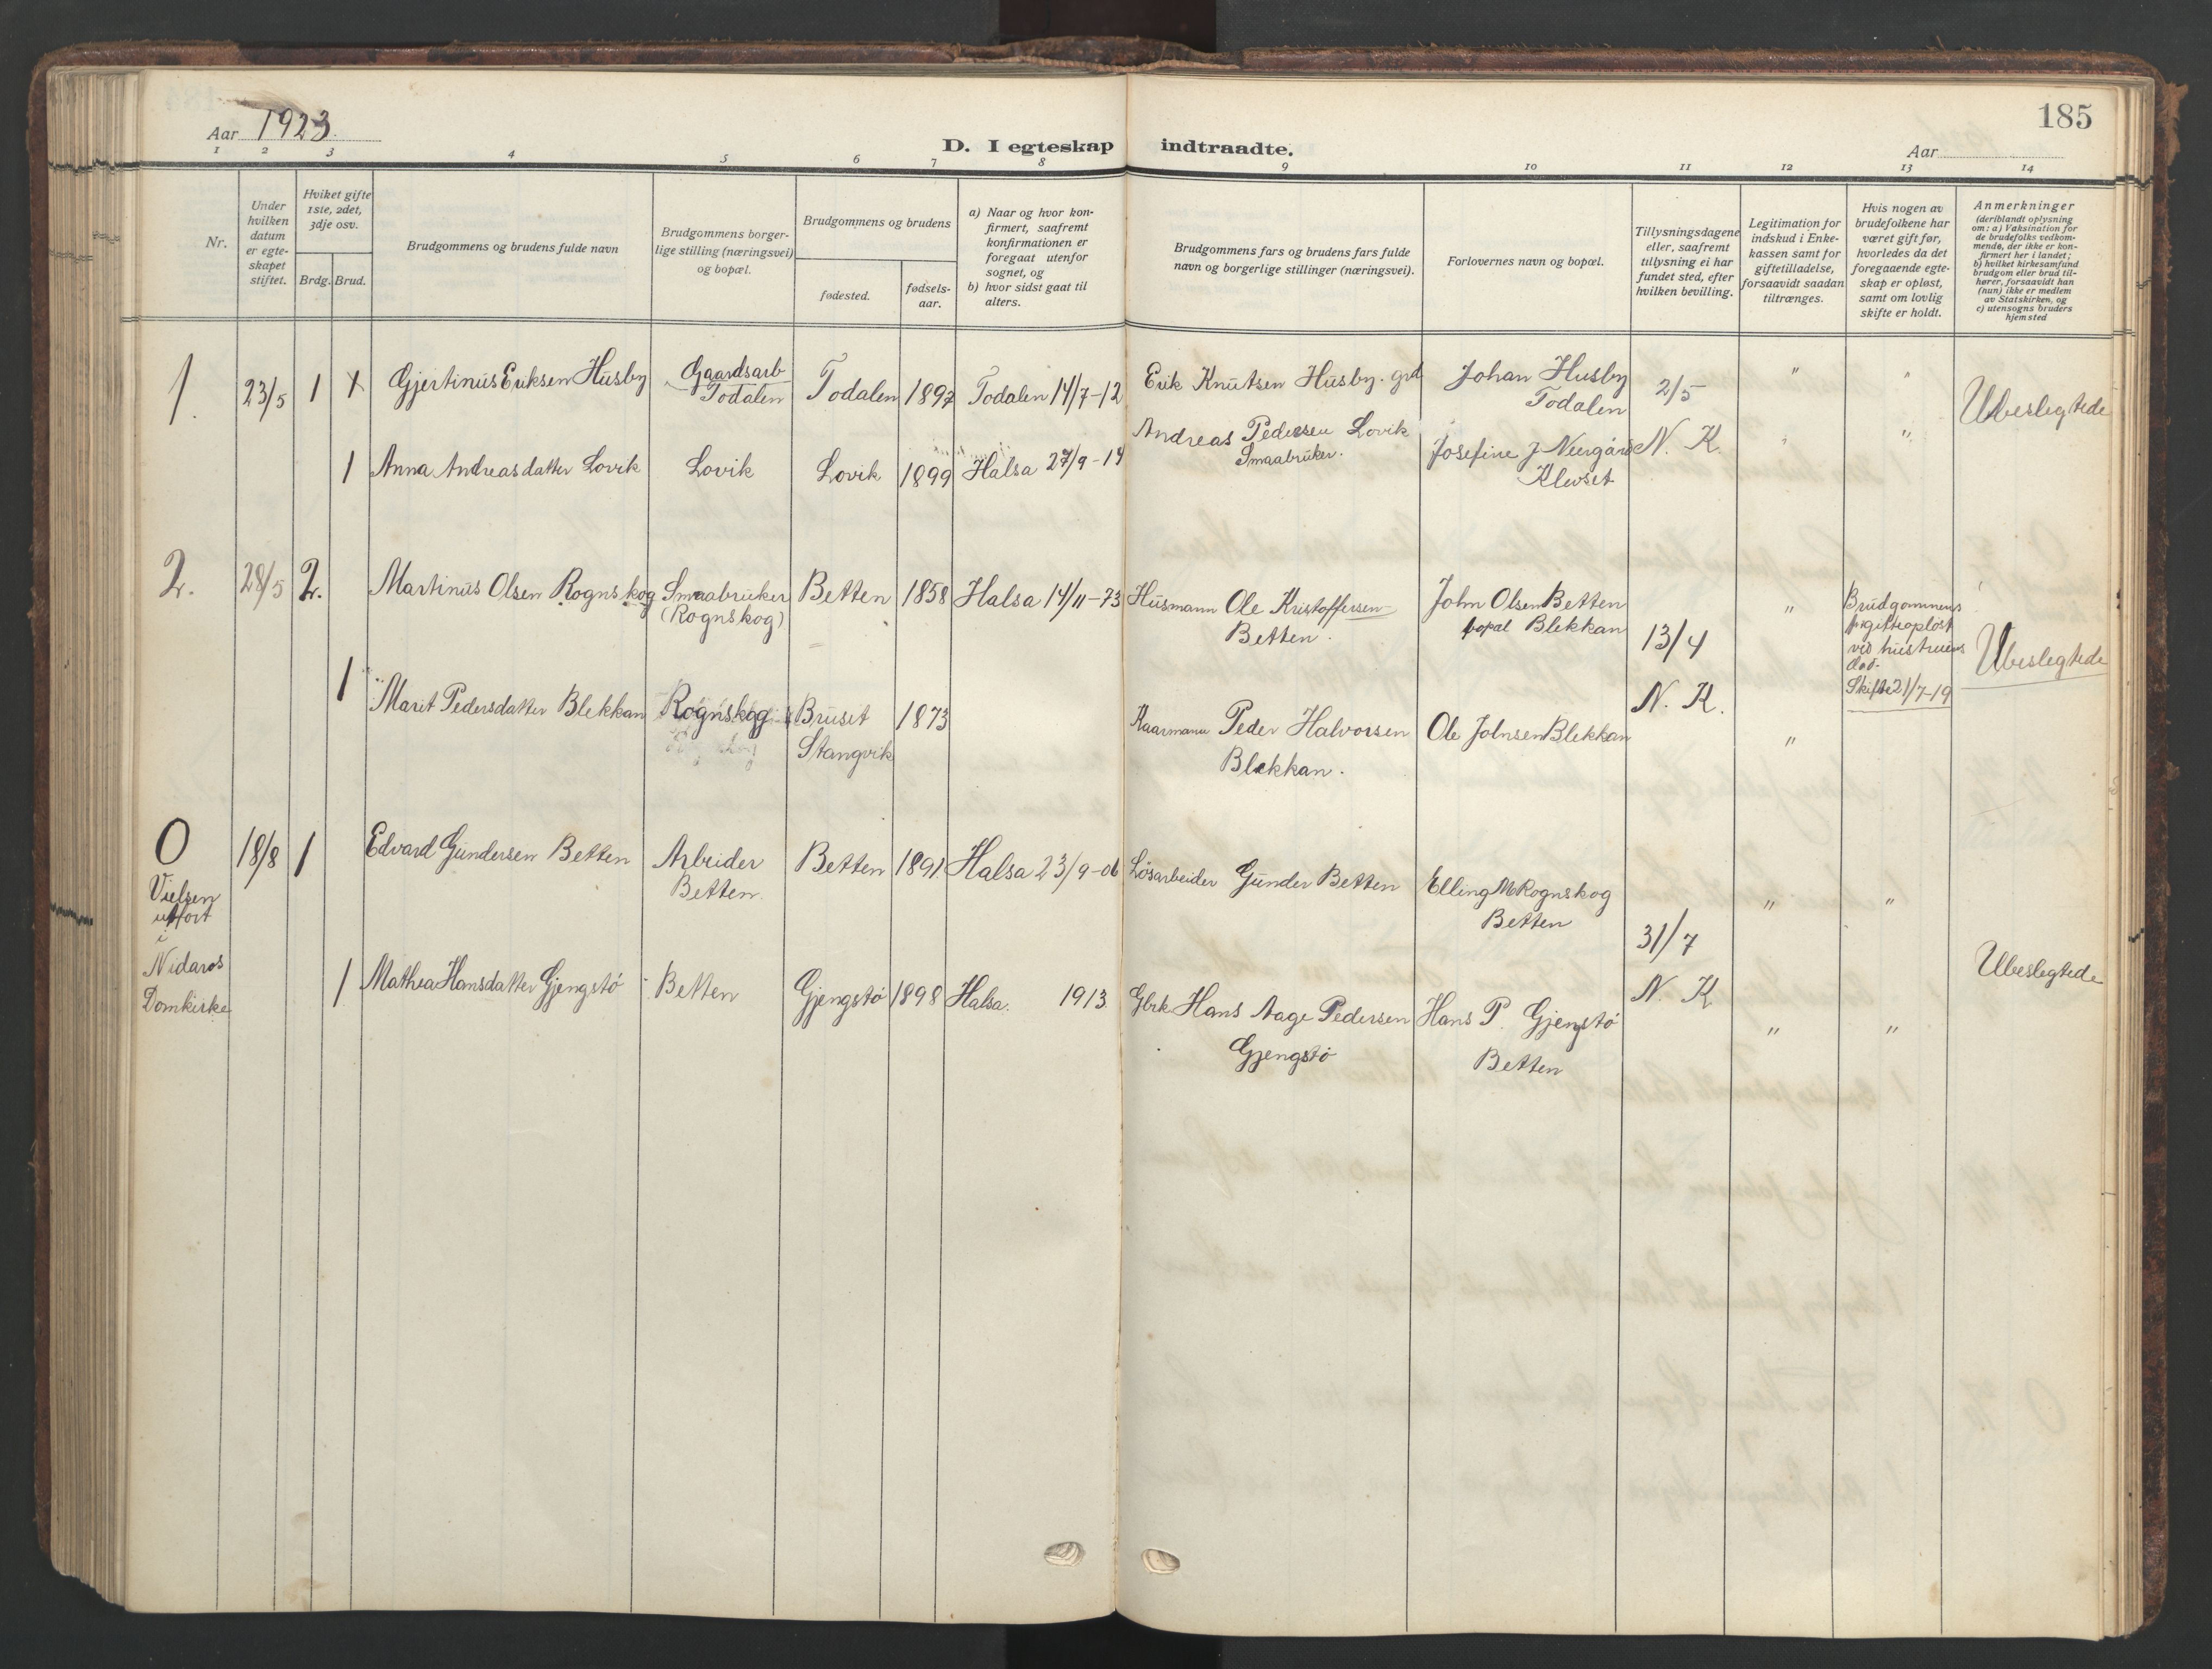 185
Aar 1923.
D. I egteskap indtraadte.
Aar
1 2 3 4 5 6 7 8 9 10 11 12 13 14
Nr.
Under
hvilken
datum
er egte-
skapet
stiftet.
Hviket gifte
1ste, 2det,
3dje osv.
Brdg. Brud.
Brudgommens og brudens fulde navn
Brudgommens borger-
lige stilling (næringsvei)
og bopæl.
Brudgommens og brudens
fødested.
fødsels-
aar.
a) Naar og hvor kon-
firmert, saafremt
konfirmationen er
foregaat utenfor
sognet, og
b) hvor sidst gaat til
alters.
Brudgommens fars og brudens fars fulde
navn og borgerlige stillinger (næringsvei).
Forlovernes navn og bopæl.
Tillysningsdagene
eller, saafremt
tillysning ei har
fundet sted, efter
hvilken bevilling.
Legitimation for
indskud i Enke-
kassen samt for
giftetilladelse,
forsaavidt saadan
tiltrænges.
Hvis nogen av
brudefolkene har
været gift før,
hvorledes da det
foregaaende egte-
skap er opløst,
samt om lovlig
skifte er holdt.
Anmerkninger
(deriblandt oplysning
om: a) Vaksination for
de brudefolks vedkom-
mende, der ikke er kon-
firmert her i landet;
b) hvilket kirkesamfund
brudgom eller brud til-
hører, forsaavidt han
(hun) ikke er medlem
av Statskirken, og
c) utensogns bruders
hjemsted
1. 23/5 1 Gjertinus Eriksen Husby
Gaardsarb
Todalen
Todalen 1897 Todalen 14/7-12
Erik Knutsen Husby. grd
Johan Husby
Todalen
2/5
N. K.
" "
Ubeslegtede
1 Anna Andreasdatter Lovik Lovik Lovik 1899 Halsa 27/9-14
Andreas Pedersen Lovik
Smaabruker.
Josefine J Neergård
Klevset
" "
2. 28/5 2. Martinus Olsen Rognskog
Smaabruker
(Rognskog)
Betten 1858 Halsa 14/11-73
Husmann Ole Kristoffersen
Betten.
John Olsen Betten
bopæl Blekkan
13/4
N. K.
"
Brudgommens
ved hustruens
død.
Skifte 21/7-19
Ubeslegtede
1 Marit Pedersdatter Blekkan Rognskog
Bruset
Stangvik
1873
Kaarmann Peder Halvorsen
Blekkan.
Ole Johnsen Blekkan
"
0
Vielsen
utført
i
Nidaros
Domkirke
18/8 1 Edvard Gundersen Betten
Arbeider
Betten.
Betten 1891 Halsa 23/9-06
Lösarbeider Gunder Betten
Elling M Rognskog
Betten
31/7
N. K
" "
Ubeslegtede
1 Mathea Hansdatter Gjengstø Betten Gjengstø 1898 Halsa. 1913
Gbrk Hans Aage Pedersen
Gjengstø
Hans P. Gjengstø
Betten
" "